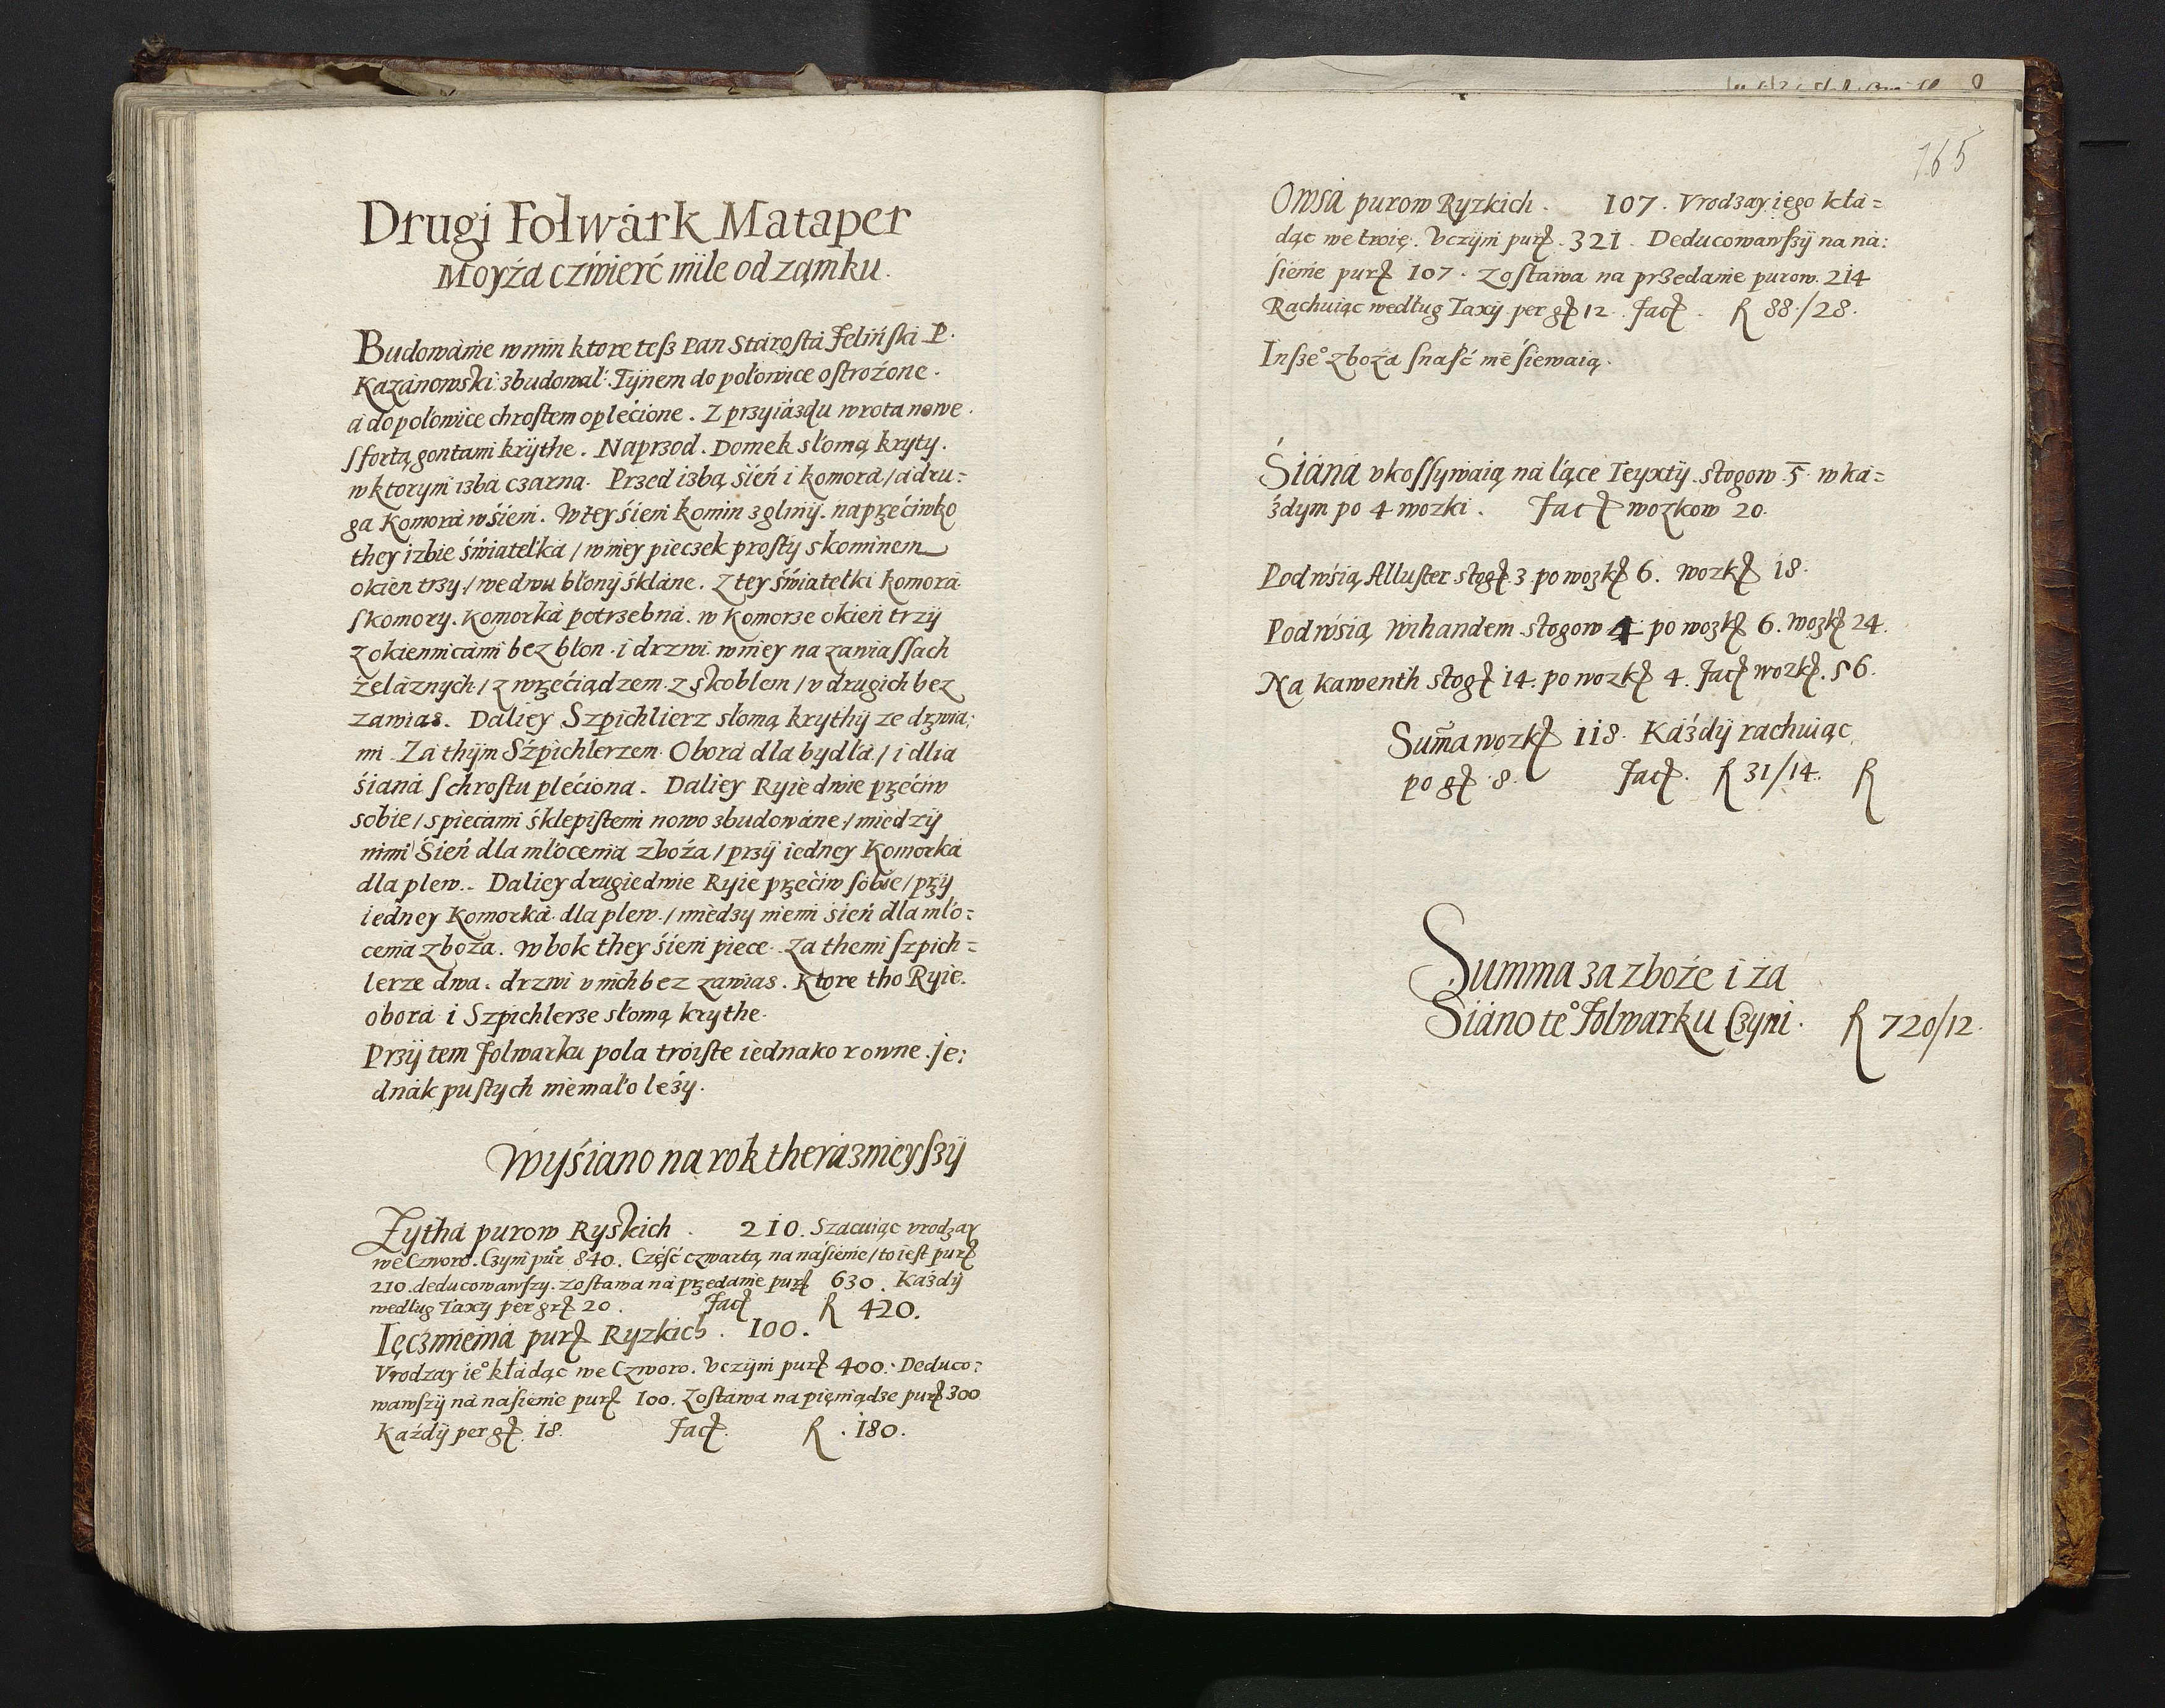 Drugi Folwárk Mataper
Moyźa cźwierć mile od ząmku.
Budowánie w nim ktore tesz Pan Stárostá Feliński P.
Kazánowski zbudował. Tynem do połowice ostrożone.
á do połowice chrostem oplećione. Z przyiázdu wrota nowe.
s fortą gontami krythe. Naprzod. Domek słomą kryty.
w ktorym izbá czarna. Przed izbą sień i komorá / á dru=
ga Komorá w śieni. W tey śieni komin z gliny. naprzećiwko
they izbie świátełká / w niey pieczek prosty s kominem
okien trzy / we dwu błony śkláne. Z tey świátełki komorá
s komory. Komorká potrzebná. w Komorze okień trzy
z okiennicámi bez błon. i drzwi w niey na zawiassach
żeláznych / z wrzećiądzem. z skoblem / v drugich bez
zawias. Daliey Szpichlierz słomą krythy ze drzwia:
mi. Zá thym Szpichlerzem. Oborá dla bydłá / i dlia
śianá s chrostu plećiona. Daliey Ryie dwie przećiw
sobie / s piecámi śklepistemi nowo zbudowáne / między
nimi Sień dla młocenia zboźa / przy iedney Komorká
dla plew. Daliey drugie dwie Ryie przećiw sobie / przy
iedney Komorká dla plew / między niemi sień dla mło=
cenia zboźa. W bok they śieni piece. Zá themi szpich=
lerze dwa. drzwi v nich bez zawias. Ktore tho Ryie.
oborá i Szpichlerze słomą krythe.
Przy tem Folwarku pola troiste iednáko rowne. je:
dnák pustych niemáło leży.
Wyśiano na rok theráznieyszy
Zythá purow Ryskich. 210. Szácuiąc vrodzay
we Czworo. Czyni pur 840. Część czwartą na náśienie / to iest pur
210. deducowawszy. zostawa ná przedanie pur 630. Każdy
według Taxy per gr 20. Fac R 420.
Ięczmieniá pur Ryzkich. 100.
Vrodzay ie° kłádąc we Czworo. Vczyni pur 400. Deduco:
wawszy ná nasienie pur 100. Zostawa na pieniądze pur 300
Każdy per g 18. Fac. R. 180.
165
Owsá purow Ryzkich. 107. Vrodzay iego kłá=
dąc we troię. Vczyni pur. 321. Deducowawszy na ná:
sienie pur 107. zostáwa na przedanie purow. 214
Rachuiąc według Taxy per g 12. Fac. R 88./28.
Insze° zboźa snaść nie śiewaią.
Śiáná vkossywáią ná łące Teyxty. stogow 5. w ká=
żdym po 4 wozki. Fac wozkow 20.
Pod wśią Alluster stog 3 po wozk 6. wozk 18.
Pod wśią Wihandem stogow 4 po wozk 6. wozk 24.
Na kawenth stog 14. po wozk 4. Fac wozk. 56.
Suma wozk 118. Káżdy rachuiąc
po g. 8. Fac. R 31/14. R
Summa za zboźe i za
Siáno te° Folwarku Czyni. R 720/12.